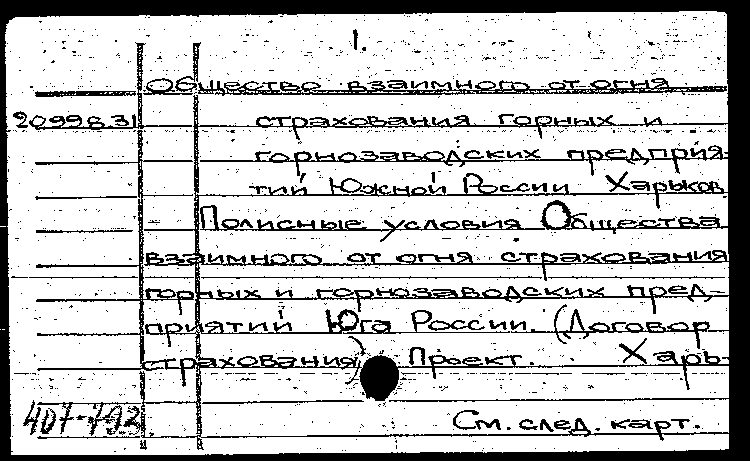 1.
Общество взаимного от огня
20996.31 страхования горных и
горнозаводских предприя-
тий Южной России. Харьков.
Полисные условия Общества
взаимного от огня страхования
горных и горнозаводских пред-
приятий Юга России. (Договор
страхования) Проект. Харь-
См. след. карт.